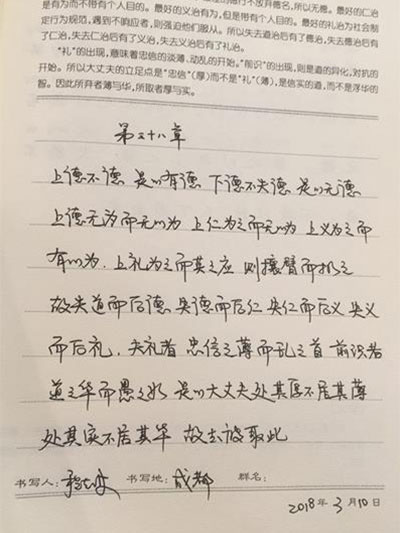 不放弃德名，所以无德。最好的仁治
是有为而不带有个人目的。最好的义治有为，但是带有个人目的。最好的礼治为社会制
定行为规范，遇到不响应者，则强迫他们服从。所以失去道治后有了德治，失去德治后有
了仁治，失去仁治后有了义治，失去义治后有了礼治。
“礼”的出现，意味着忠信的淡薄、动乱的开始。“前识”的出现，则是道的异化，对抗的
开始。所以大丈夫的立足点是“忠信”(厚)而不是“礼”(薄)，是信实的道，而不是浮华的
智。因此所弃者薄与华，所取者厚与实。
第三十八章
上德不德 是以有德 下德不失德 是以无德
上德无为而无以为 上仁为之而无以为 上义为之而
有以为. 上礼为之而莫之应 则攘臂而扔之
故失道而后德 失德而后仁 失仁而后义 失义
而后礼. 夫礼者 忠信之薄而乱之首 前识者
道之华而愚之始 是以大丈夫处其厚不居其薄
处其实不居其华 故去彼取此
书写人： 书写地：成都 群名：
2018年3月10日